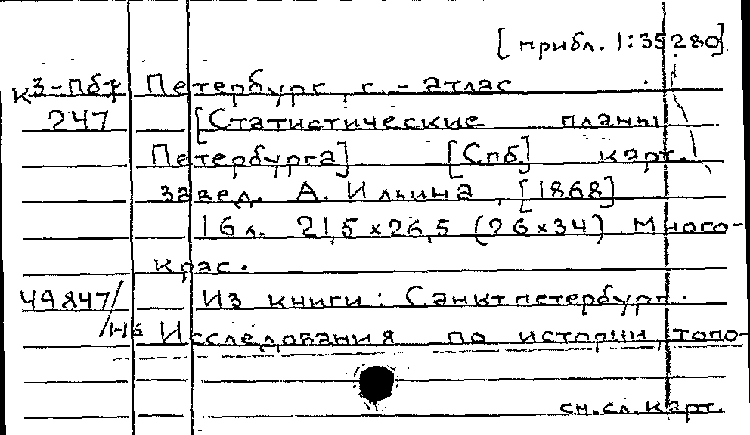 [прибл. 1:35280]
К3-Пбг Петербург, г. - атлас
247 [Статистические планы
Петербурга] [Спб.] карт.
завед. А. Ильина, [1868]
16 л. 21,5×26,5 (26×34) Много-
крас.
49847/ Из книги: Санктпетербург.
Исследования по истории, топо-
см. сл. карт.